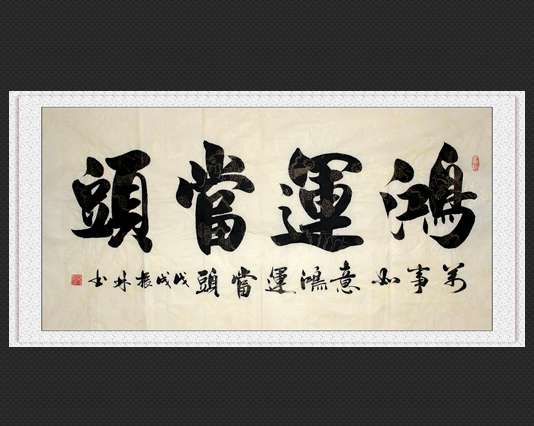 鴻運當頭
萬事如意鴻運當頭戊戌振林書